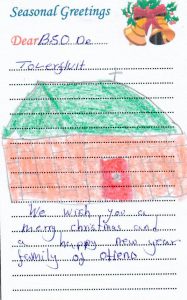 Seasonal Greetings
Dear BSO De
Tolerghit
We wish you a
merry christmas and
a happy new year
family of otieno